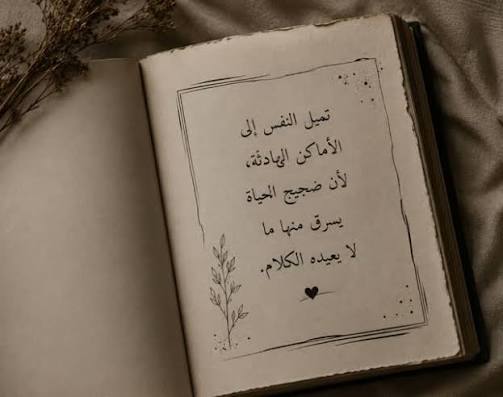 تميل النفس إلى
الأماكن الهادئة،
لأن ضجيج الحياة
يسرق منها ما
لا يعيده الكلام.